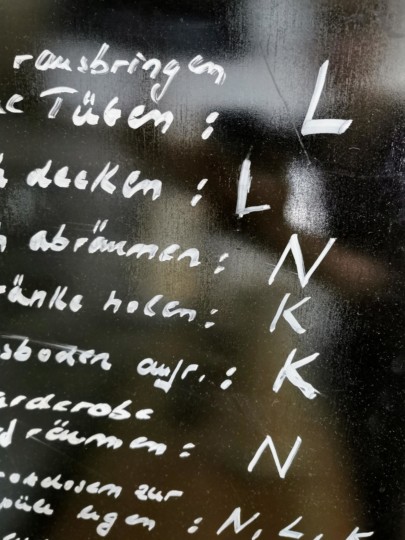 rausbringen
Tüten: L
decken: L
abräumen: N
ränke holen: K
sboden aufr.: K
arderobe
räumen: N
otdosen zur
legen: N, L, K